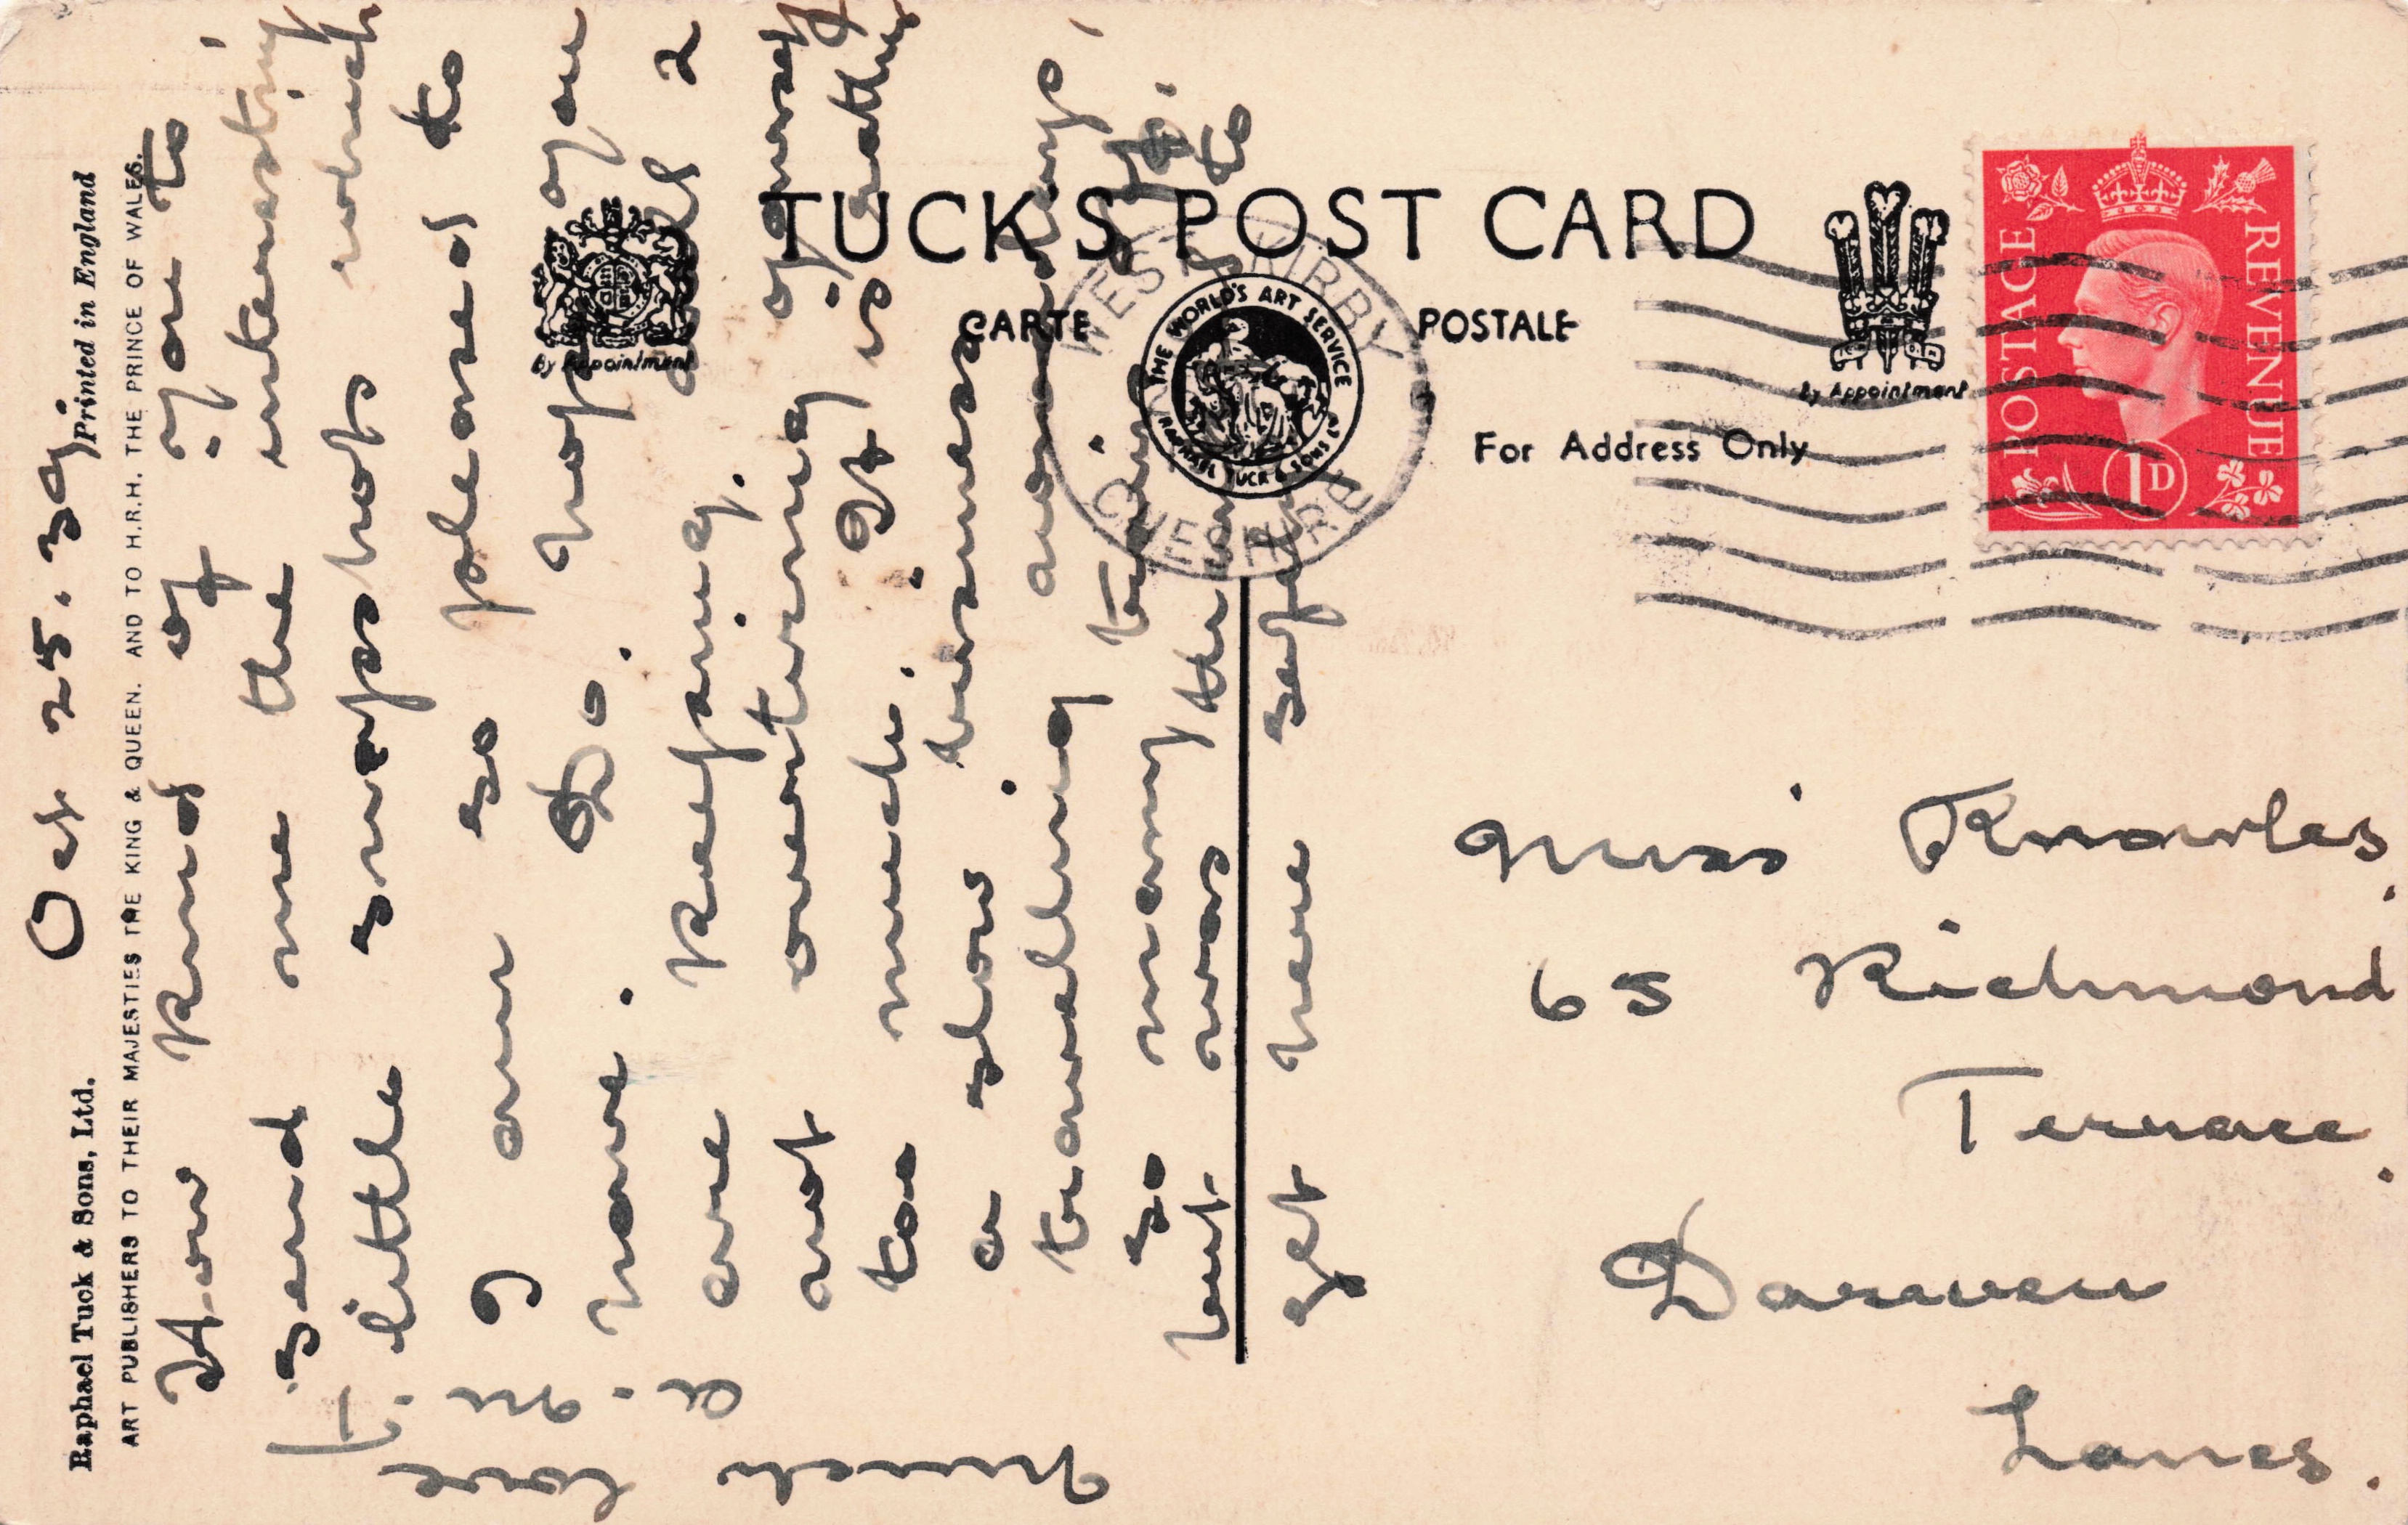 Raphael Tuck & Sons, Ltd. Printed in England
ART PUBLISHERS TO THEIR MAJESTIES THE KING & QUEEN. AND TO H.R.H. THE PRINCE OF WALES.
Oct 25.39
How kind of you to
send me the interesting
little snapshots which
I am so pleased to
have. Do hope you
are keeping. well &
not overtiring yourself
too much. It is rather
a slow business
travelling nowadays,
so many trains off.
but was to
get here safely
TUCK'S POST CARD
CARTE POSTALE
by Appointment
by Appointment
THE WORLD'S ART SERVICE
RAPHAEL TUCK & SONS LTD
For Address Only
WEST KIRBY
POSTAGE REVENUE
1D
Miss Knowles.
65 Richmond
Terrace.
Darwen
Lancs.